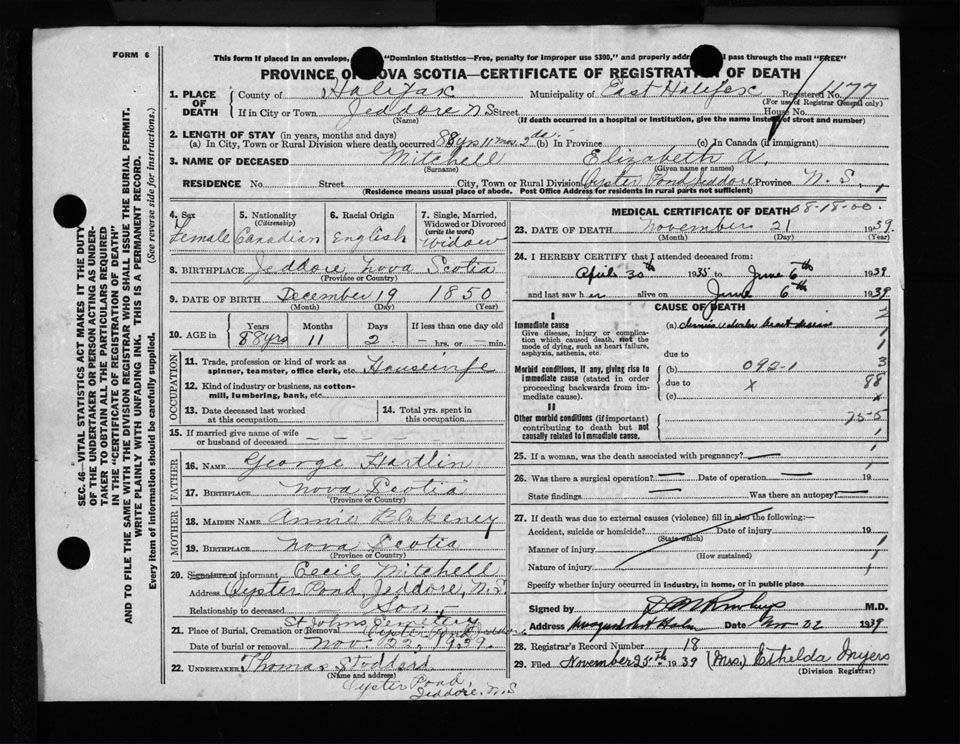 FORM 6
This form if placed in an envelope, "Dominion Statistics—Free, penalty for improper use $300," and properly addre pass through the mail "FREE"
PROVINCE OF NOVA SCOTIA—CERTIFICATE OF REGISTRATION OF DEATH
1. PLACE OF DEATH County of Halifax Municipality of East Halifax Registered No. 1177
(For use of Registrar General only)
If in City or Town Jeddore N S Street House No.
(Name) (If death occurred in a hospital or institution, give the name instead of street and number)
2. LENGTH OF STAY (in years, months and days)
(a) In City, Town or Rural Division where death occurred 88 yrs 11 mos. 2 da. (b) In Province (c) In Canada (if immigrant)
3. NAME OF DECEASED Mitchell Elizabeth A.
(Surname) (Given name or names)
RESIDENCE No. Street City, Town or Rural Division Oyster Pond Jeddore Province N. S.
(Residence means usual place of abode. Post Office Address for residents in rural parts not sufficient)
4. Sex Female
5. Nationality (Citizenship) Canadian
6. Racial Origin English
7. Single, Married, Widowed or Divorced (write the word) Widow
8. BIRTHPLACE Jeddore, Nova Scotia
(Province or Country)
9. DATE OF BIRTH December 19 1850
(Month) (Day) (Year)
10. AGE in Years Months Days If less than one day old
88 yrs 11 2 hrs. or min.
OCCUPATION
11. Trade, profession or kind of work as spinner, teamster, office clerk, etc. Housewife
12. Kind of industry or business, as cotton-mill, lumbering, bank, etc.
13. Date deceased last worked at this occupation
14. Total yrs. spent in this occupation
15. If married give name of wife or husband of deceased — — — — —
FATHER
16. NAME George Hartlin
17. BIRTHPLACE Nova Scotia
(Province or Country)
MOTHER
18. MAIDEN NAME Annie Blakeney
19. BIRTHPLACE Nova Scotia
(Province or Country)
20. Signature of informant Cecil Mitchell
Address Oyster Pond, Jeddore, N.S.
Relationship to deceased — Son —
St Johns Cemetery
21. Place of Burial, Cremation or Removal Oyster Pond Jeddore
Date of burial or removal Nov. 22, 1939.
22. UNDERTAKER Thomas Stoddard
(Name and address)
Oyster Pond,
Jeddore, N. S
MEDICAL CERTIFICATE OF DEATH 08-18-00.
23. DATE OF DEATH November 21 1939.
(Month) (Day) (Year)
24. I HEREBY CERTIFY that I attended deceased from:
April 30th 1935 to June 6th 1939
and last saw her alive on June 6th 1939
CAUSE OF DEATH
I
Immediate cause
Give disease, injury or complication which caused death, not the mode of dying, such as heart failure, asphyxia, asthenia, etc.
(a) Chronic valvular heart disease
due to
Morbid conditions, if any, giving rise to immediate cause (stated in order proceeding backwards from immediate cause).
(b) 092-1 3
due to x 88
(c) x
II
Other morbid conditions (if important) contributing to death but not causally related to immediate cause.
75-5
1
25. If a woman, was the death associated with pregnancy? —
26. Was there a surgical operation? — Date of operation 19
State findings — Was there an autopsy? —
27. If death was due to external causes (violence) fill in also the following:—
Accident, suicide or homicide? Date of injury 19
(State which)
Manner of injury
(How sustained)
Nature of injury
Specify whether injury occurred in industry, in home, or in public place
Signed by M.D.
Address Date Nov 22 1939
28. Registrar's Record Number 18
29. Filed November 25th 1939 (Mrs.) Ethelda Myers
(Division Registrar)
SEC. 46—VITAL STATISTICS ACT MAKES IT THE DUTY
OF THE UNDERTAKER OR PERSON ACTING AS UNDER-
TAKER TO OBTAIN ALL THE PARTICULARS REQUIRED
IN THE "CERTIFICATE OF REGISTRATION OF DEATH"
AND TO FILE THE SAME WITH THE DIVISION REGISTRAR WHO SHALL ISSUE THE BURIAL PERMIT.
WRITE PLAINLY WITH UNFADING INK. THIS IS A PERMANENT RECORD.
Every item of information should be carefully supplied. (See reverse side for instructions.)